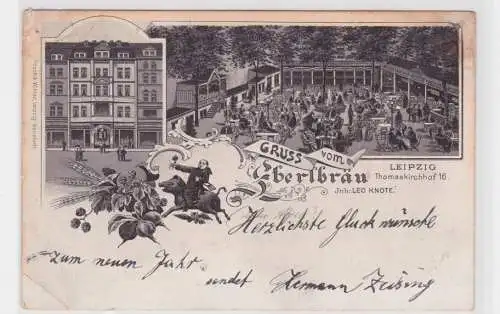 GRUSS VOM
Eberlbräu
LEIPZIG
Thomaskirchhof 16.
Inh: LEO KNOTE.
Herzlichste Glückwünsche
zum neuen Jahr
sendet Hermann Zeising